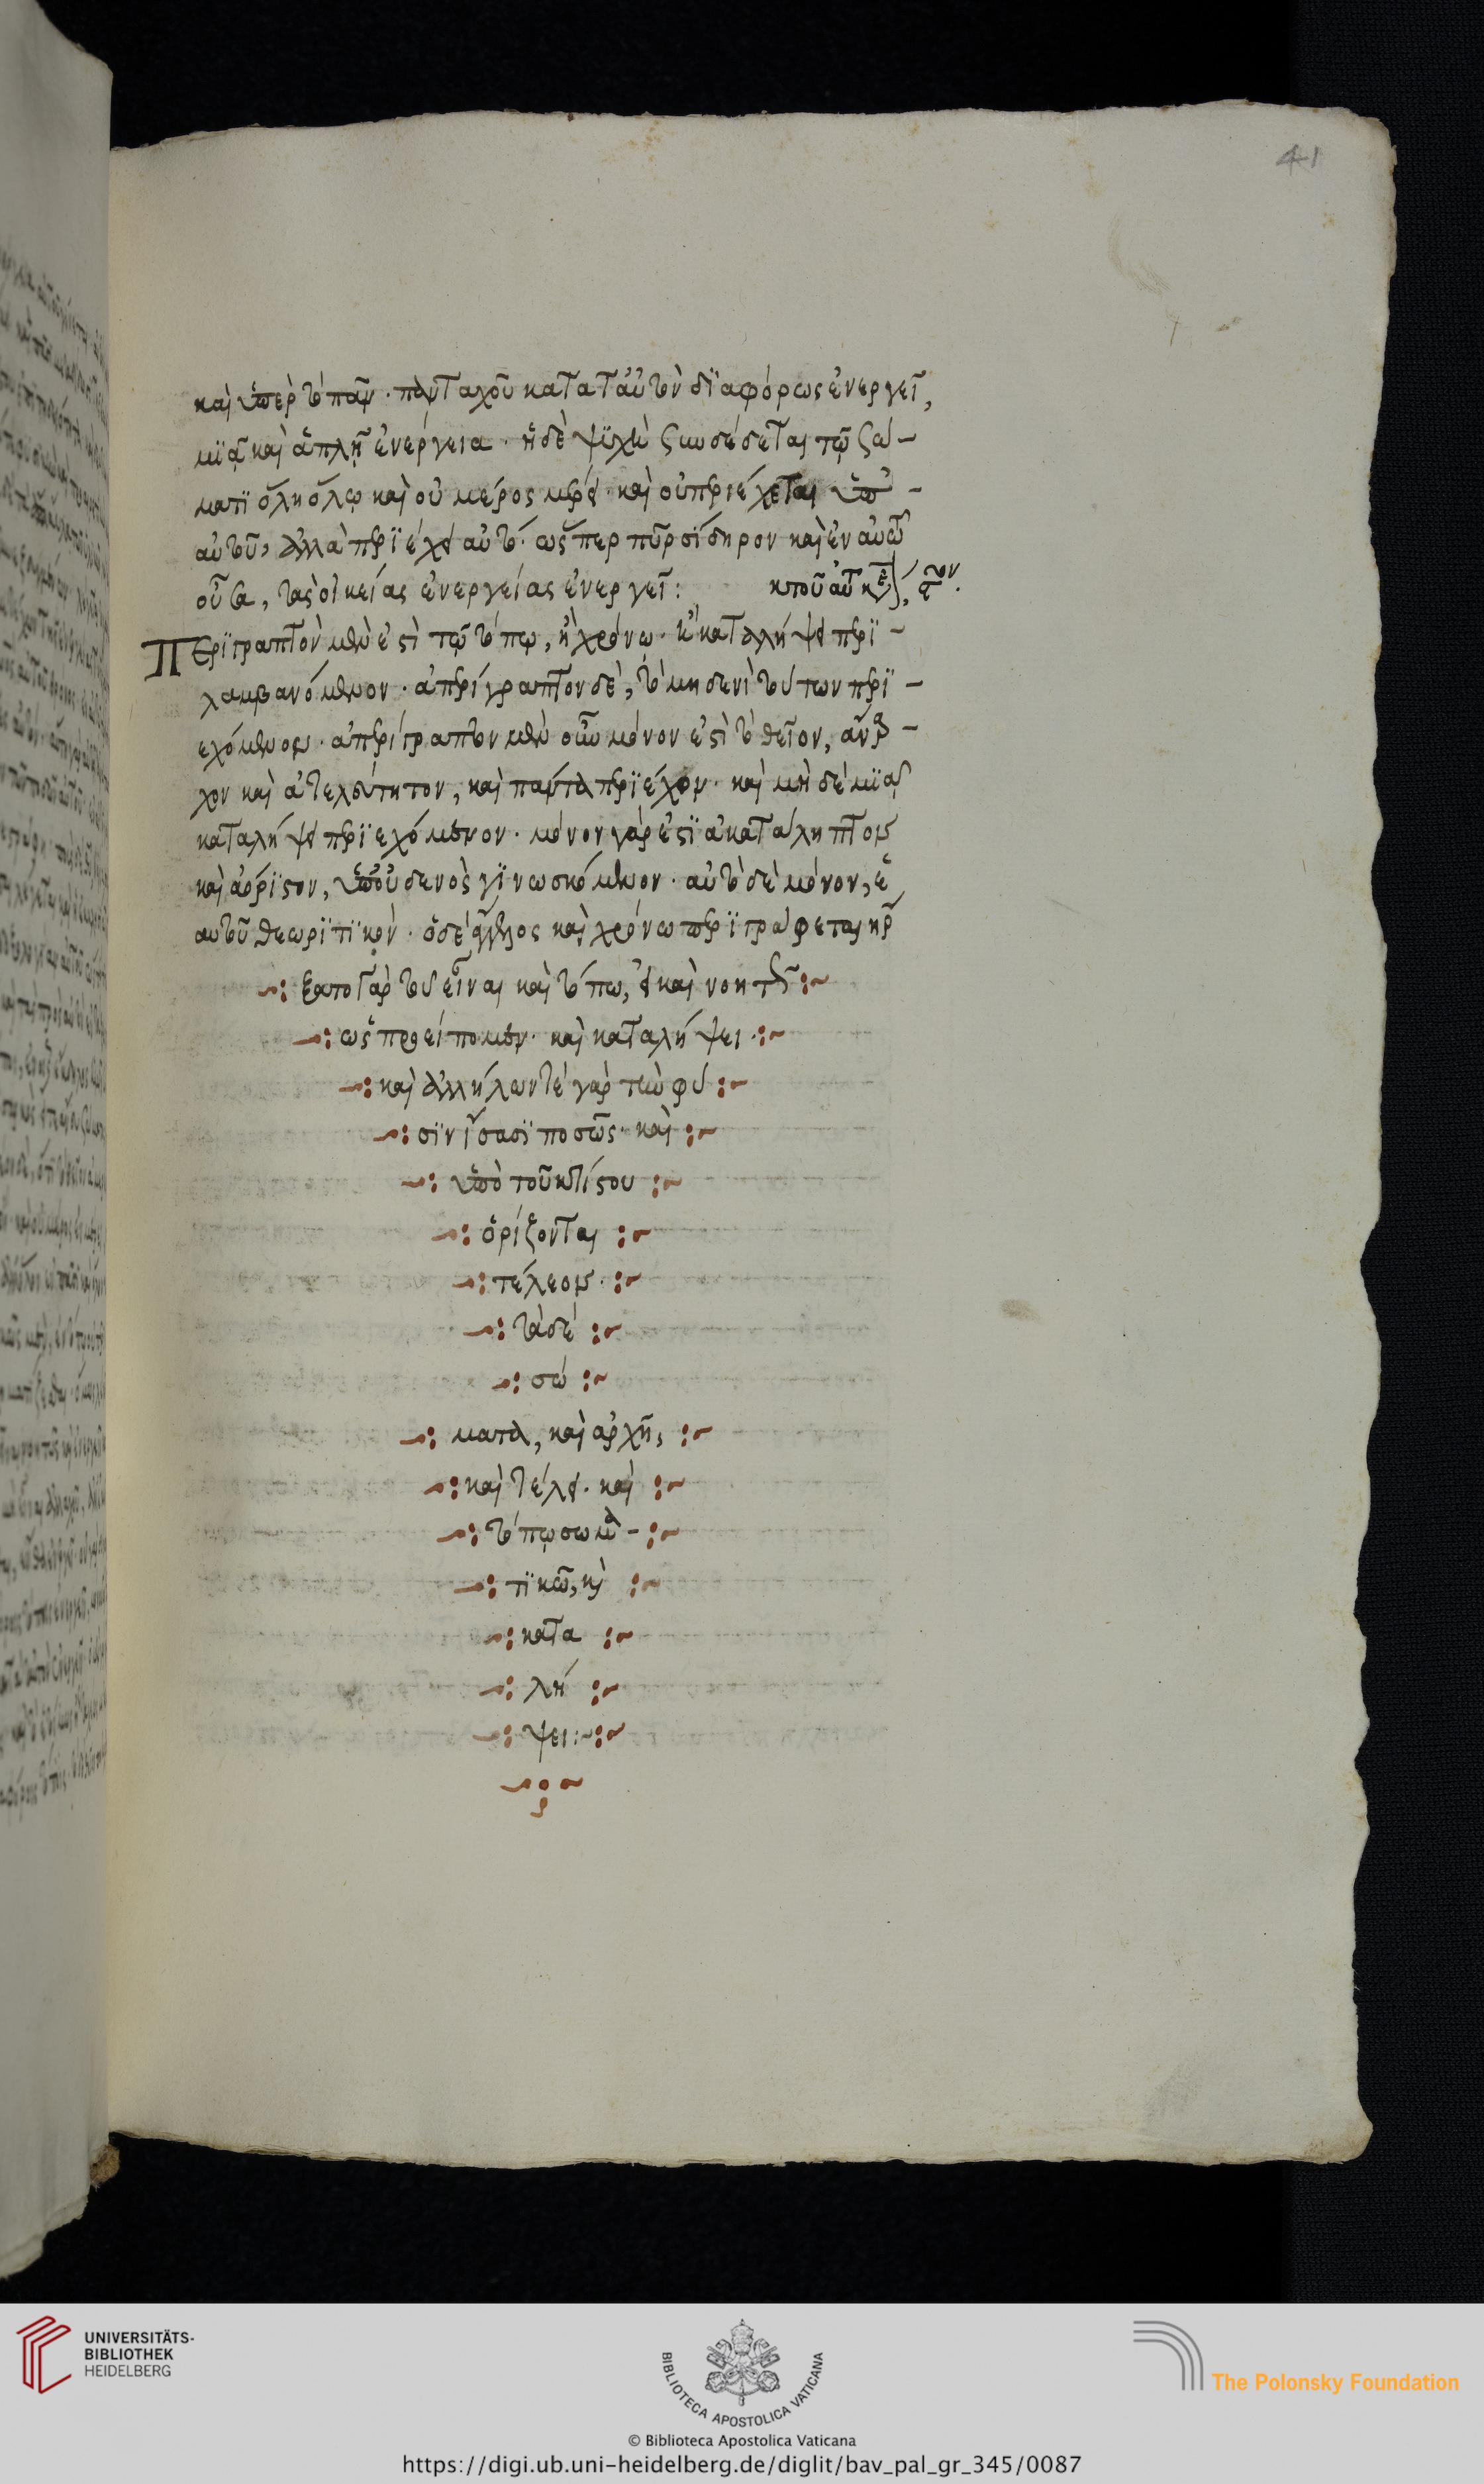 41
καὶ ὑπὲρ τὸ πᾶν· πανταχοῦ κατα ταὐτὸν διαφόρως ἐνεργεῖ,
μϊᾷ καὶ ἁπλῇ ἐνέργεια· ἡ δὲ ψϋχὴ συνδέδεται τῷ σώ-
ματϊ ὅλη ὅλῳ καὶ οὐ μέρος μέρει· καὶ οὐ περιέχεται ὑπ' -
αὐτοῦ, ἀλλὰ περϊέχει αὐτό· ὥσπερ πῦρ σϊδηρον καὶ ἐν αὐτῷ
οὖσα, τὰς οἰκείας ἐνεργείας ἐνεργεῖ:
Περϊγραπτὸν μὲν ἐστὶ τῷ τόπῳ, ἢ χρόνω· ἢ καταλήψει περϊ-
λαμβανόμενον· ἀπερίγραπτον δὲ, τὸ μηδενὶ τούτων περϊ-
εχόμενον· ἀπερίγραπτον μὲν οὖν μόνον ἐστὶ τὸ θεῖον, ἄναρ-
χον καὶ ἀτελεύτητον, καὶ πάντα περϊέχον· καὶ μὴ δέ μϊᾷ
καταλήψει περϊεχόμενον· μόνον γάρ ἐστϊ ἀκατάληπτον
καὶ ἀόρϊστον, ὑπ' οὐδενὸς γϊνωσκόμενον· αὐτὸ δὲ μόνον, ἑ
αυτοῦ θεωρϊτϊκόν· ὁ δὲ ἄγγελος καὶ χρόνω περϊγράφεται ἤρ
ξατο γὰρ τοῦ εἶναι καὶ τόπω, εἰ καὶ νοητῶς
ὡς προείπομεν· καὶ καταλήψει·
καὶ ἀλλήλων τέ γάρ τὴν φύ
σϊν ἴσασϊ ποσῶς· καὶ
ὑπὸ τοῦ κτίστου
ὁρίζονται
τέλεον·
τὰ δέ
σώ
ματα, καὶ ἀρχῇ,
καὶ τέλει· καὶ
τόπῳ σωμα-
τϊκῶ, καὶ
κατα
λή
ψει:
UNIVERSITÄTS-
BIBLIOTHEK
HEIDELBERG
BIBLIOTECA APOSTOLICA VATICANA
The Polonsky Foundation
© Biblioteca Apostolica Vaticana
https://digi.ub.uni-heidelberg.de/diglit/bav_pal_gr_345/0087